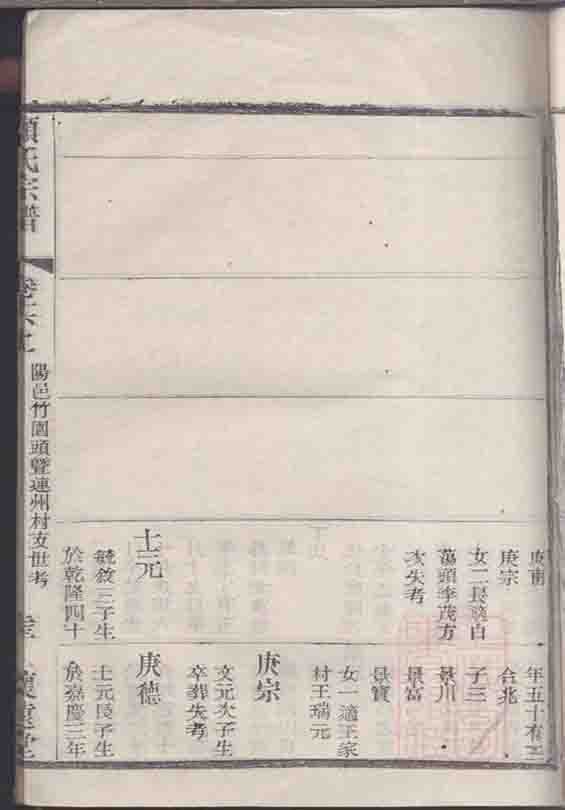 庚南
庚宗
女二長適白
蕩頭李茂方
次失考
士元
毓敘三子生
於乾隆四十
年五十有三
合兆
子三
景川
景富
景寶
女一適王家
村王瑞元
庚宗
文元次子生
卒葬失考
庚德
士元長子生
於嘉慶三年
氏宗譜
陽邑竹園頭暨連州村支世考